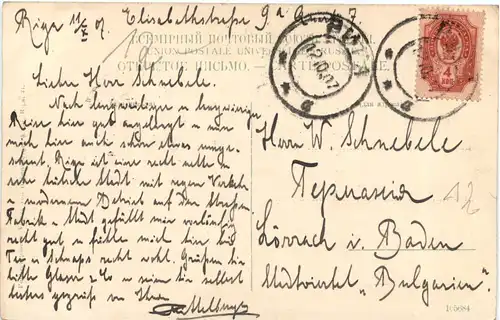 Riga 11/X 07. Elisabethstrasse 9a Quart 7
ВСЕМІРНЫЙ ПОЧТОВЫЙ
UNION POSTALE UNIVERSELLE RUSSIE
ОТКРЫТОЕ ПИСЬМО. CARTE POSTALE
РИГА
12.10.07
4
Lieber Herr Schnebele.
Nach langweiliger u langwieriger
Reise hier gut angelangt u nun
mich hier auch schon etwas umge-
schaut. Riga ist eine recht nette u
sehr hübsche Stadt mit regem Verkehr
u modernem Betrieb auf den Strassen.
Fabrik u Stadt gefällt mir vorläufig
recht gut u fühle mich hier bei
Tee u Schnaps recht wohl. Grüßen Sie
bitte
u seien Sie selbst
bestens gegrüßt von Ihrem
Herrn W. Schnebele
Германія
Lörrach i. Baden
"Bulgarien"
12